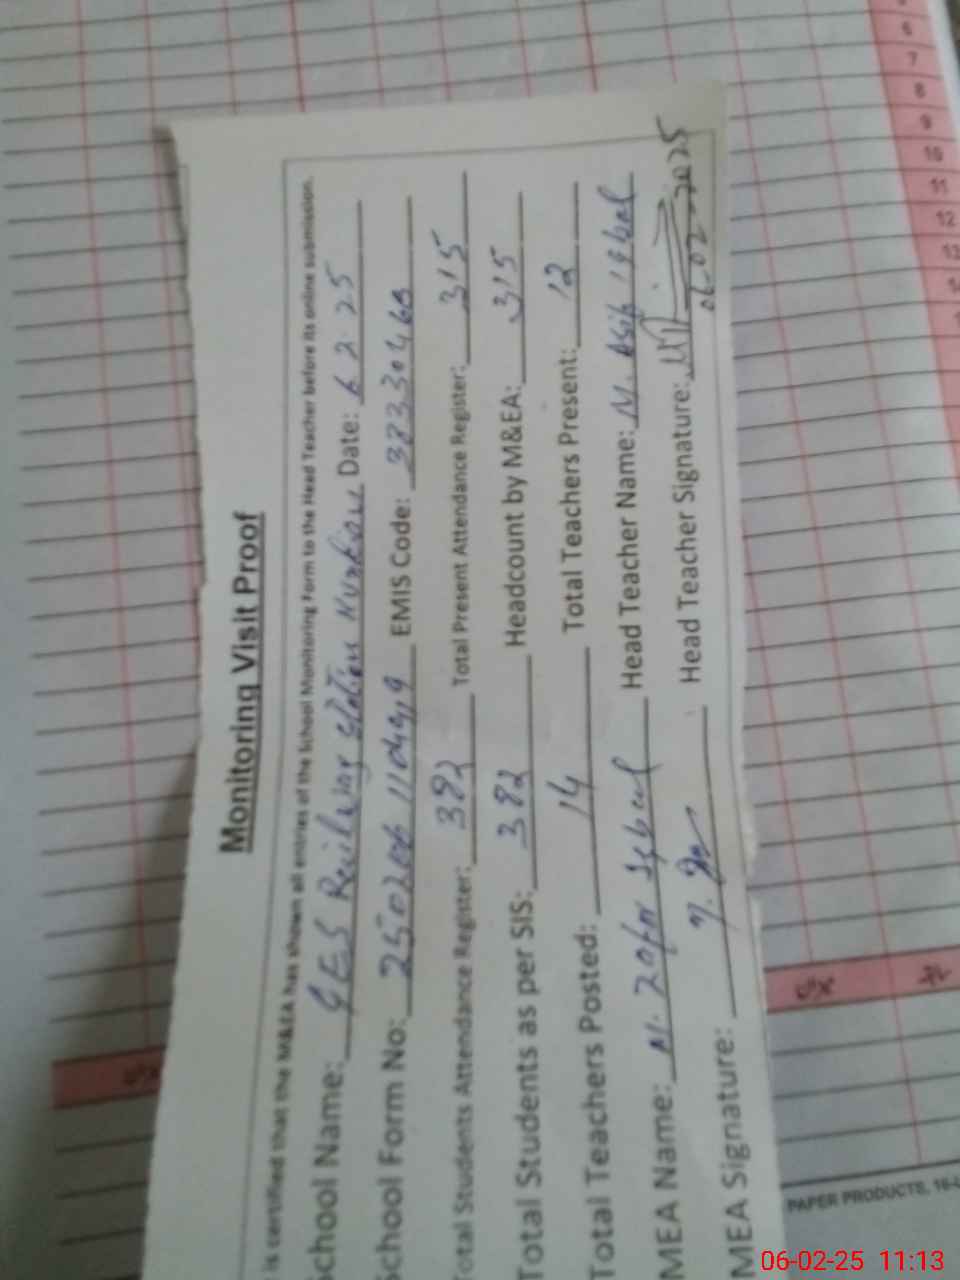 Monitoring Visit Proof
is certified that the M&EA has shown all entries of the School Monitoring Form to the Head Teacher before its online submission.
School Name: GES Railway Station Date: 6 2 25
School Form No: EMIS Code:
Total Students Attendance Register: 392 Total Present Attendance Register: 315
Total Students as per SIS: 392 Headcount by M&EA: 315
Total Teachers Posted: 14 Total Teachers Present: 12
MEA Name: M. Head Teacher Name: M. Asif Iqbal
MEA Signature: Head Teacher Signature:
06-02-2025
6
7
8
9
10
11
12
13
PAPER PRODUCTS, 16-
06-02-25 11:13